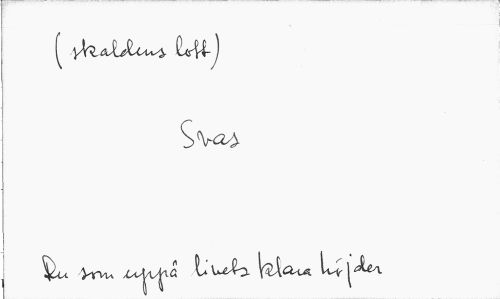 (skaldens loft)
Svas
Du som uppå livets klara höjder